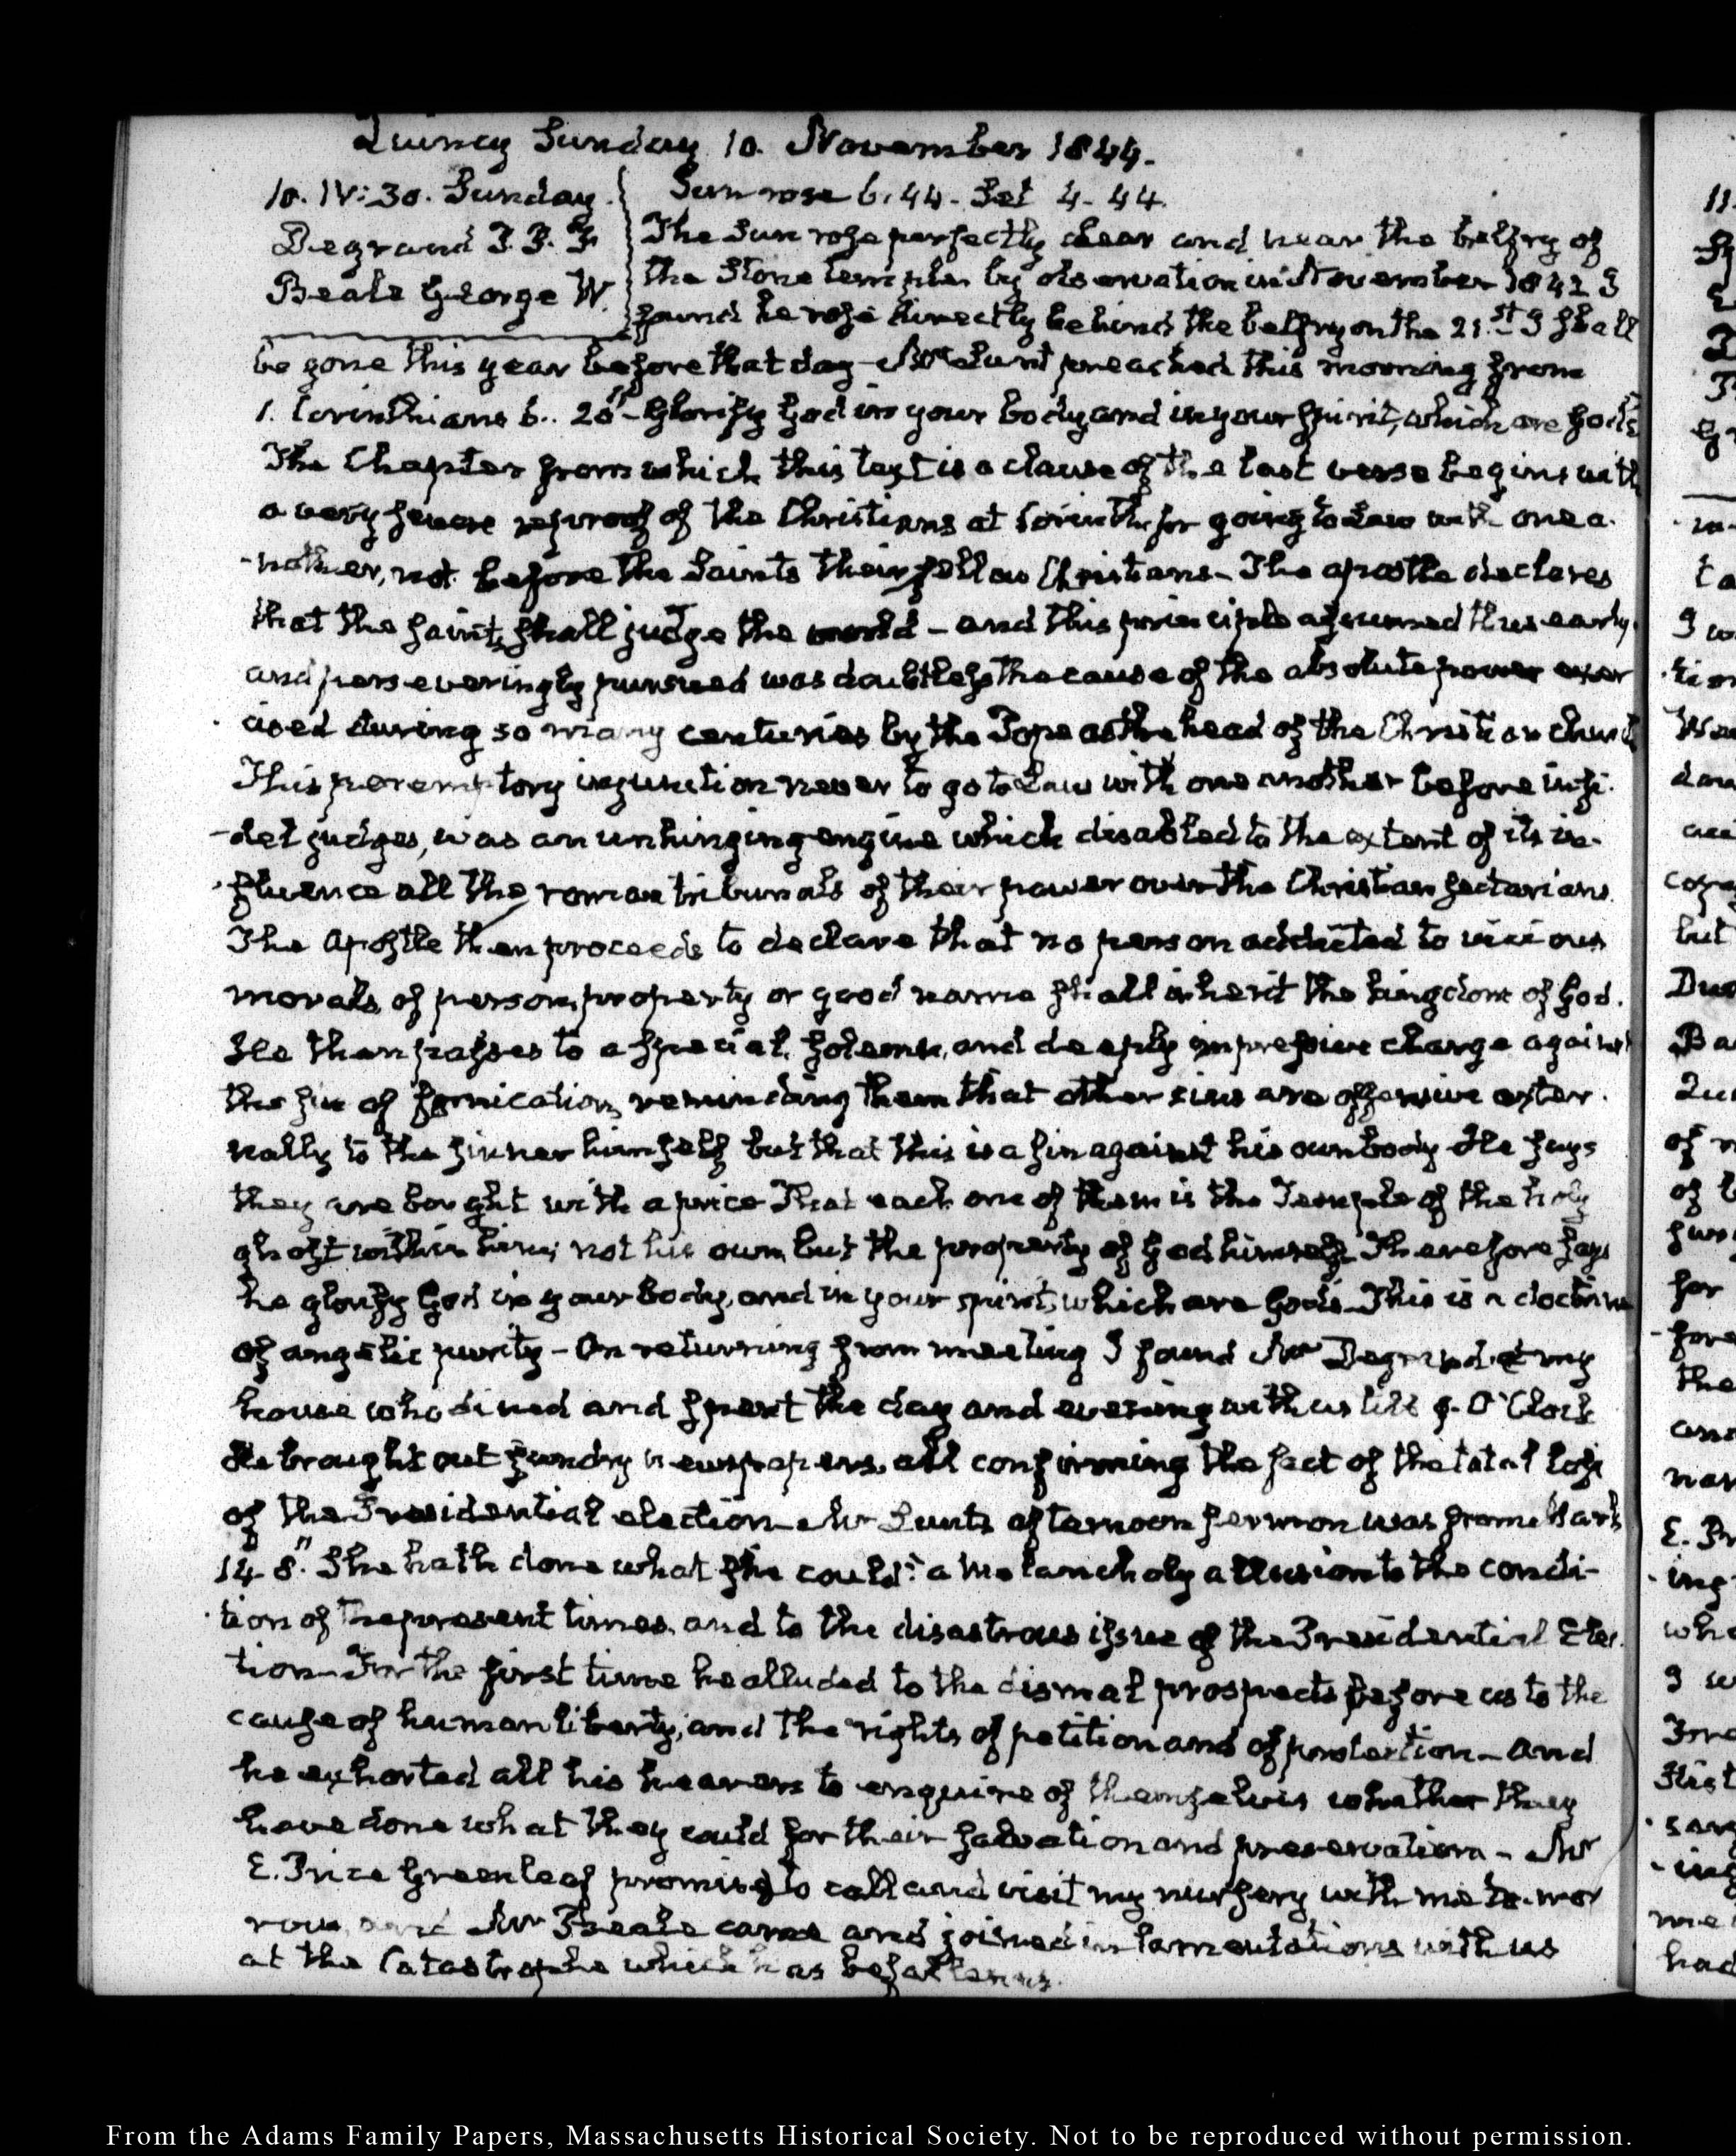 Quincy Sunday 10. November 1844.
10. IV:30. Sunday.
Degrand P. P. F
Beale George W.
Sun rose 6.44 - Set 4-44.
The Sun rose perfectly clear and near the belfry of
the Stone temple by observation in November 1842 I
found he rose directly behind the belfry on the 21.st I shall
be gone this year before that day - Mr Lunt preached this morning from
1. Corinthians 6. 20 "Glorify God in your body and in your spirit, which are God's
The Chapter from which this text is a clause of the last verse begins with
a very severe reproof of the Christians at Corinth for going to Law with one a-
-nother, not before the Saints their fellow Christians - The apostle declares
that the Saints shall judge the world - and this principle assumed thus early
and perseveringly pursued was doubtless the cause of the absolute power exer
cised during so many centuries by the Pope as the head of the Christian church
This peremptory injunction never to go to Law with one another before infi-
-del judges, was an unhinging engine which disabled to the extent of its in-
-fluence all the roman tribunals of their power over the Christian sectarians.
The Apostle then proceeds to declare that no person addicted to vicious
morals, of person, property or good name shall inherit the kingdom of God.
He then passes to a special, solemn, and deeply impressive charge against
the sin of fornication, reminding them that other sins are offensive exter-
nally to the sinner himself but that this is a sin against his own body He says
they are bought with a price That each one of them is the Temple of the holy
ghost within him; not his own, but the property of God himself Therefore says
he glorify God in your body, and in your spirit, which are Gods. This is a doctrine
of angelic purity - On returning from meeting I found Mr Degrand at my
house who dined and spent the day and evening with us till 9. O'Clock
He brought out sundry newspapers, all confirming the fact of the total loss
of the Presidential election - Mr Lunts afternoon sermon was from Mark
14. 8. "She hath done what she could": a melancholy allusion to the condi-
-tion of the present times, and to the disastrous issue of the Presidential Elec-
tion - For the first time he alluded to the dismal prospects before us to the
cause of human liberty, and the rights of petition and of protection - and
he exhorted all his hearers to enquire of themselves whether they
have done what they could for their salvation and preservation - Mr
E. Price Greenleaf promised to call and visit my nursery with me to-mor
row, and Mr Beale came and joined in lamentations with us
at the Catastrophe which has befallen us.
From the Adams Family Papers, Massachusetts Historical Society. Not to be reproduced without permission.